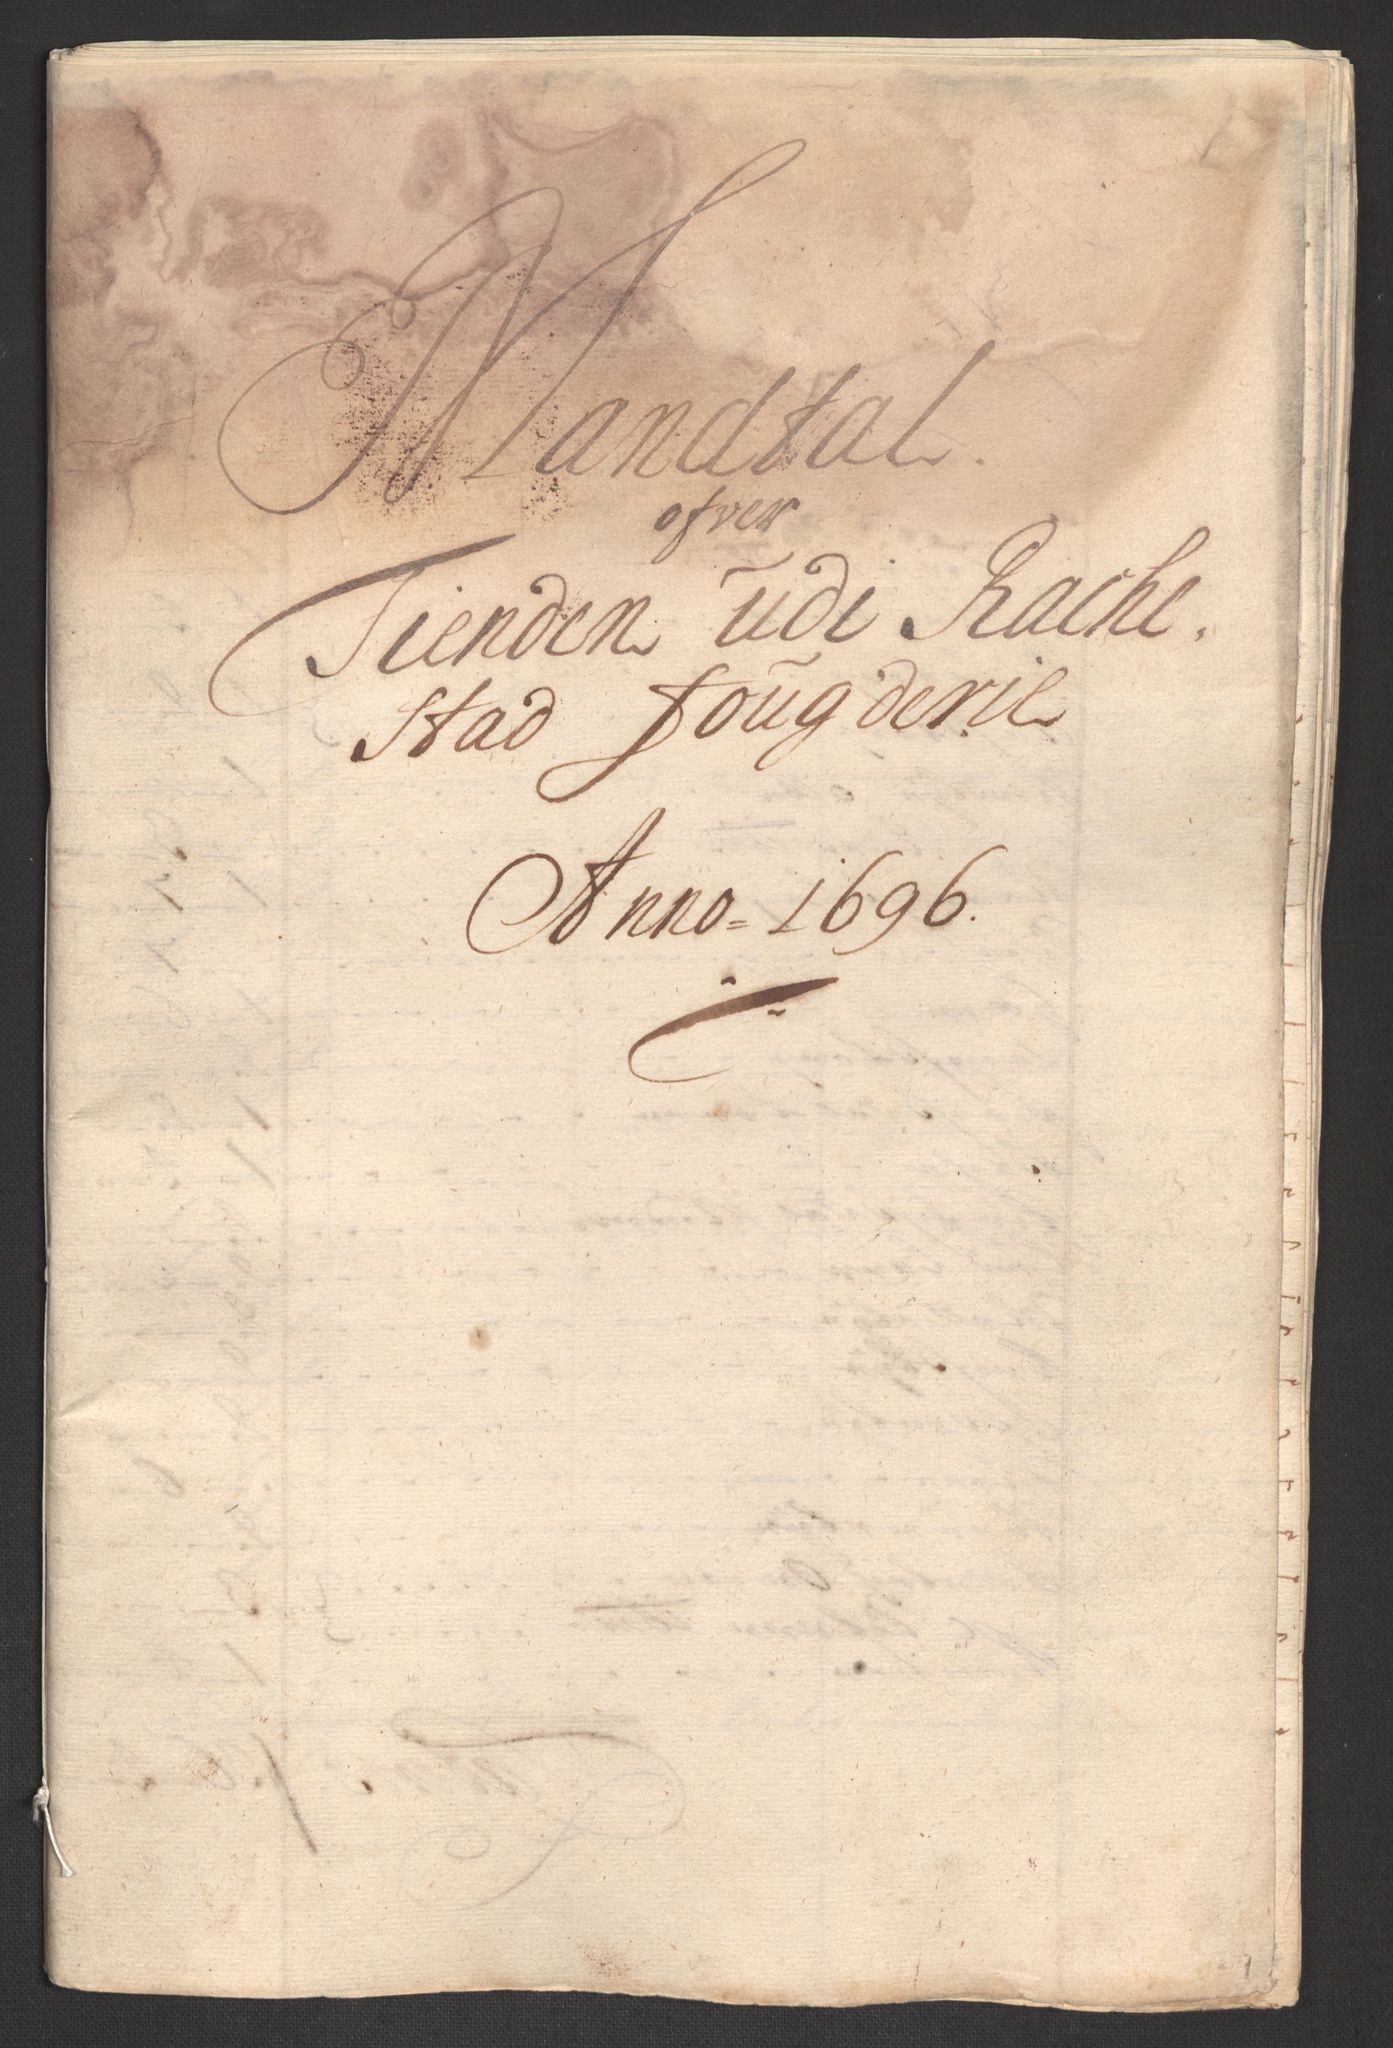 Mandtal.
ofver
Tienden ũdi Rache,
stad foũgderie
Anno = 1696.